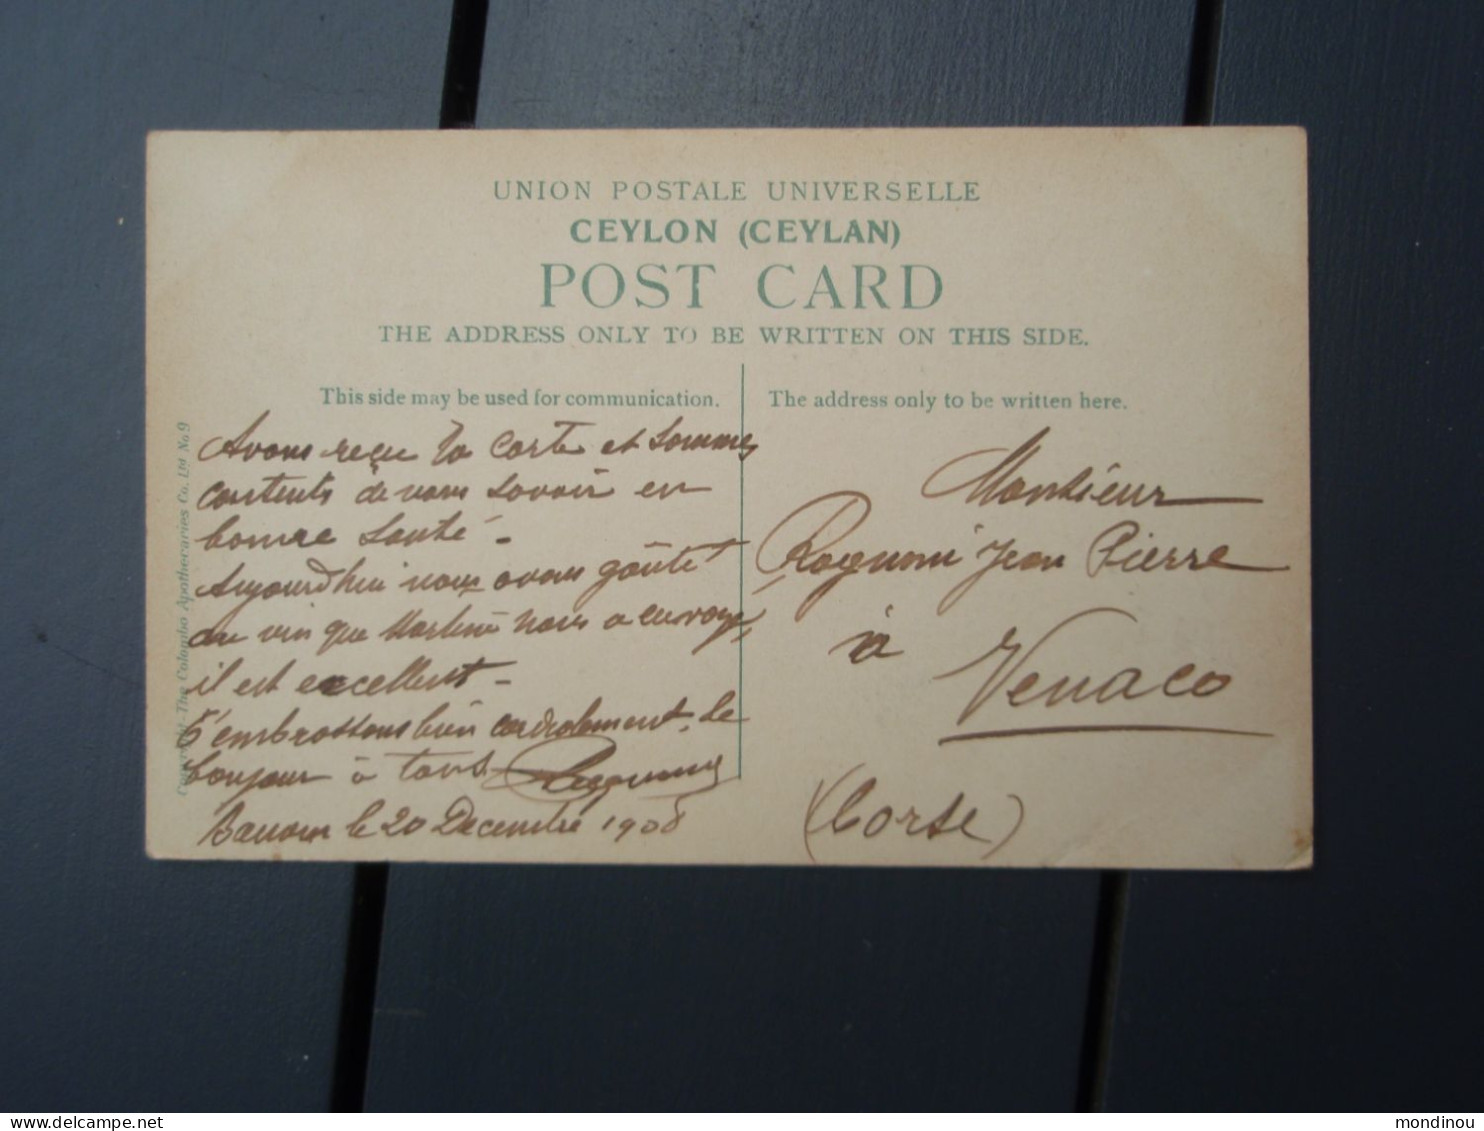 UNION POSTALE UNIVERSELLE
CEYLON (CEYLAN)
POST CARD
THE ADDRESS ONLY TO BE WRITTEN ON THIS SIDE.
This side may be used for communication.
The address only to be written here.
Avons reçu ta carte et sommes
contents de vous savoir en
bonne santé -
Aujourd'hui nous avons goûté
au vin que nous a envoyé,
il est excellent -
T'embrassons bien cordialement. le
bonjour à tous
le 20 Décembre 1908
Monsieur
Rognoni Jean Pierre
à
Venaco
(Corse)
The Colombo Apothecaries Co. Ltd No. 9
mondinou